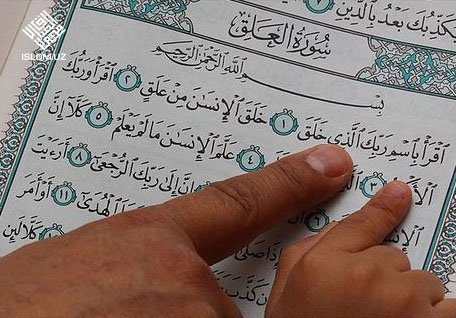 يُكَذِّبُكَ بَعْدُ بِٱلدِّينِ ٧
سُورَةُ ٱلْعَلَقِ
بِسْمِ ٱللَّهِ ٱلرَّحْمَٰنِ ٱلرَّحِيمِ
ٱقْرَأْ بِٱسْمِ رَبِّكَ ٱلَّذِى خَلَقَ ١ خَلَقَ ٱلْإِنسَٰنَ مِنْ عَلَقٍ ٢ ٱقْرَأْ وَرَبُّكَ
٣ ٤ عَلَّمَ ٱلْإِنسَٰنَ مَا لَمْ يَعْلَمْ ٥ كَلَّآ إِنَّ
٦ إِنَّ إِلَىٰ رَبِّكَ ٱلرُّجْعَىٰٓ ٨ أَرَءَيْتَ
إِذَا صَلَّىٰٓ ٱلْهُدَىٰٓ ١١ أَوْ أَمَرَ
كَذَّبَ كَلَّا لَئِن
ISLOM.UZ